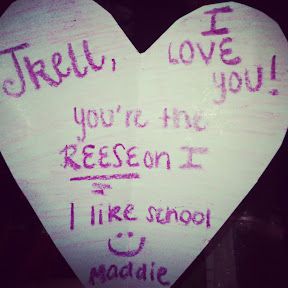 Jkell,
I
LOVE
YOU!
you're the
REESEon I
I like school
Maddie